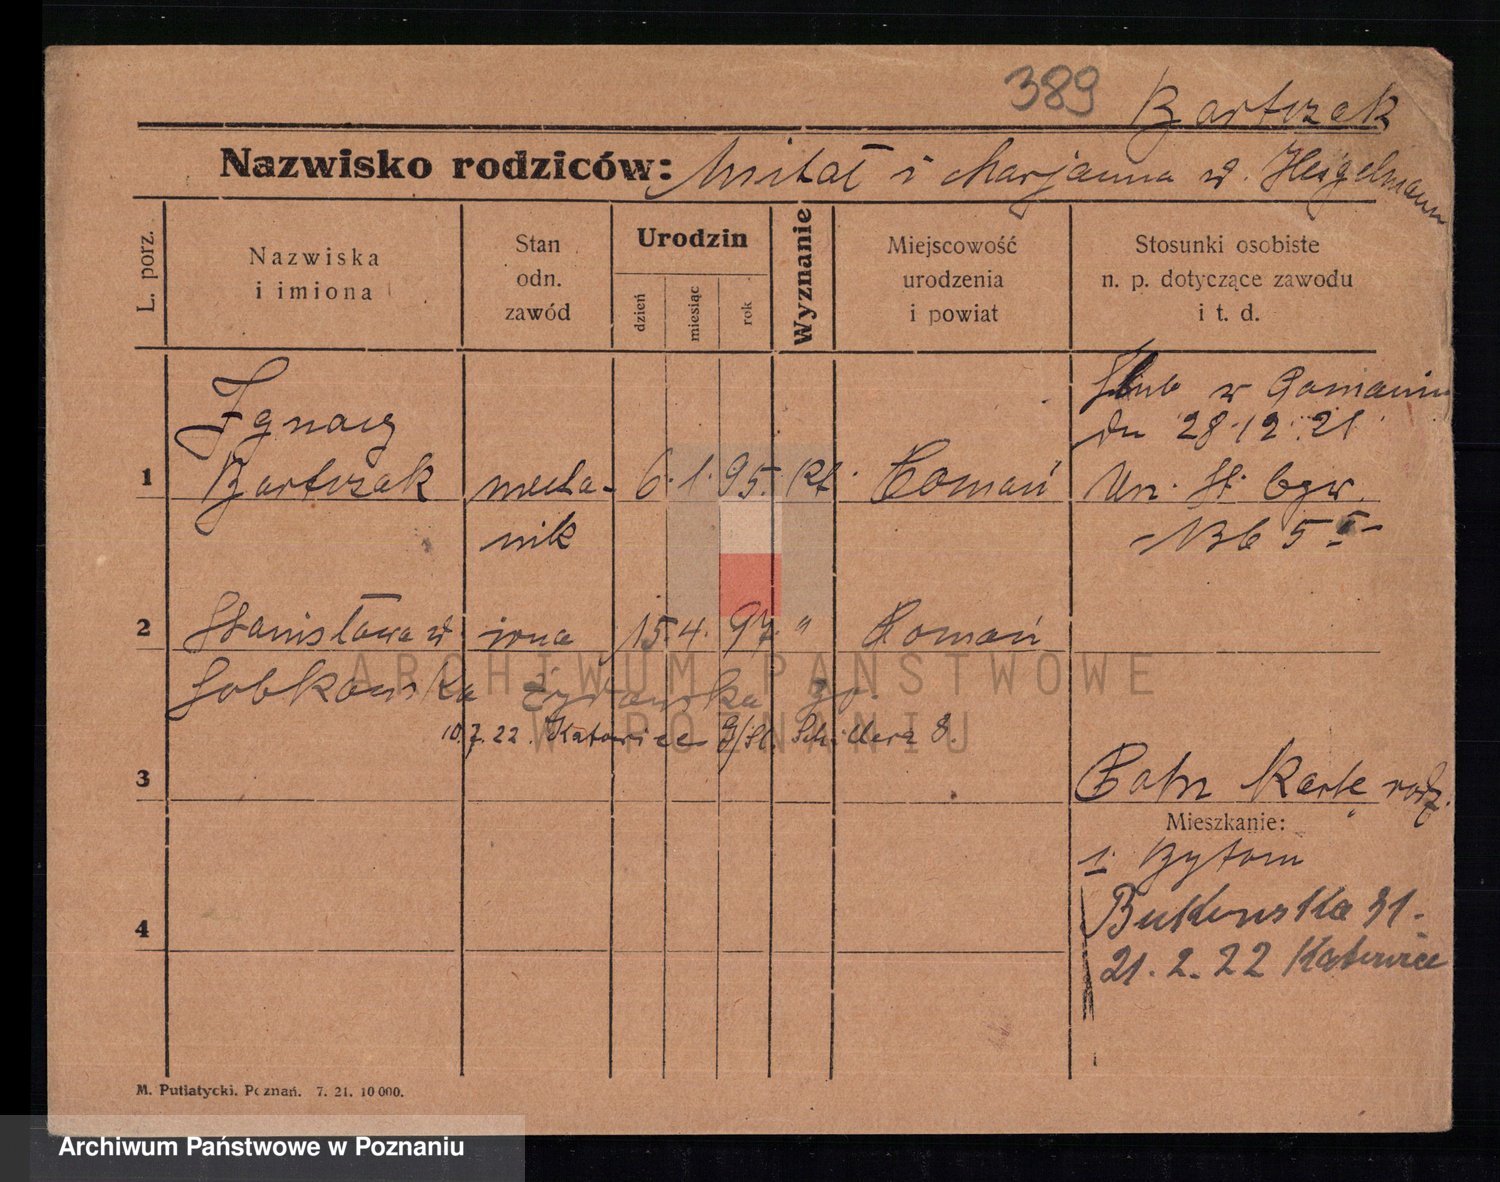 389
Bartczak
Nazwisko rodziców: Michał i Marjanna ur. Heigelmann
L. porz.
Nazwiska
i imiona
Stan
odn.
zawód
Urodzin
dzień
miesiąc
rok
Wyznanie
Miejscowość
urodzenia
i powiat
Stosunki osobiste
n. p. dotyczące zawodu
i t. d.
Ślub w Poznaniu
dn 28.12.21
Ignacy
1 Bartczak mecha- 6. 1. 95. kt. Poznań
nik
Un. St. Cyw.
2 Stanisława ur. żona 15. 4. 97. " Poznań
Sobkowska
10.7.22. Katowice G/Śl. Schillera 8.
3
Patrz Kartę rodz.
Mieszkanie:
1. Bytom
Bukowska 31.
4
21. 2. 22 Katowice
M. Putiatycki. Poznań. 7. 21. 10 000.
ARCHIWUM PAŃSTWOWE
W POZNANIU
Archiwum Państwowe w Poznaniu